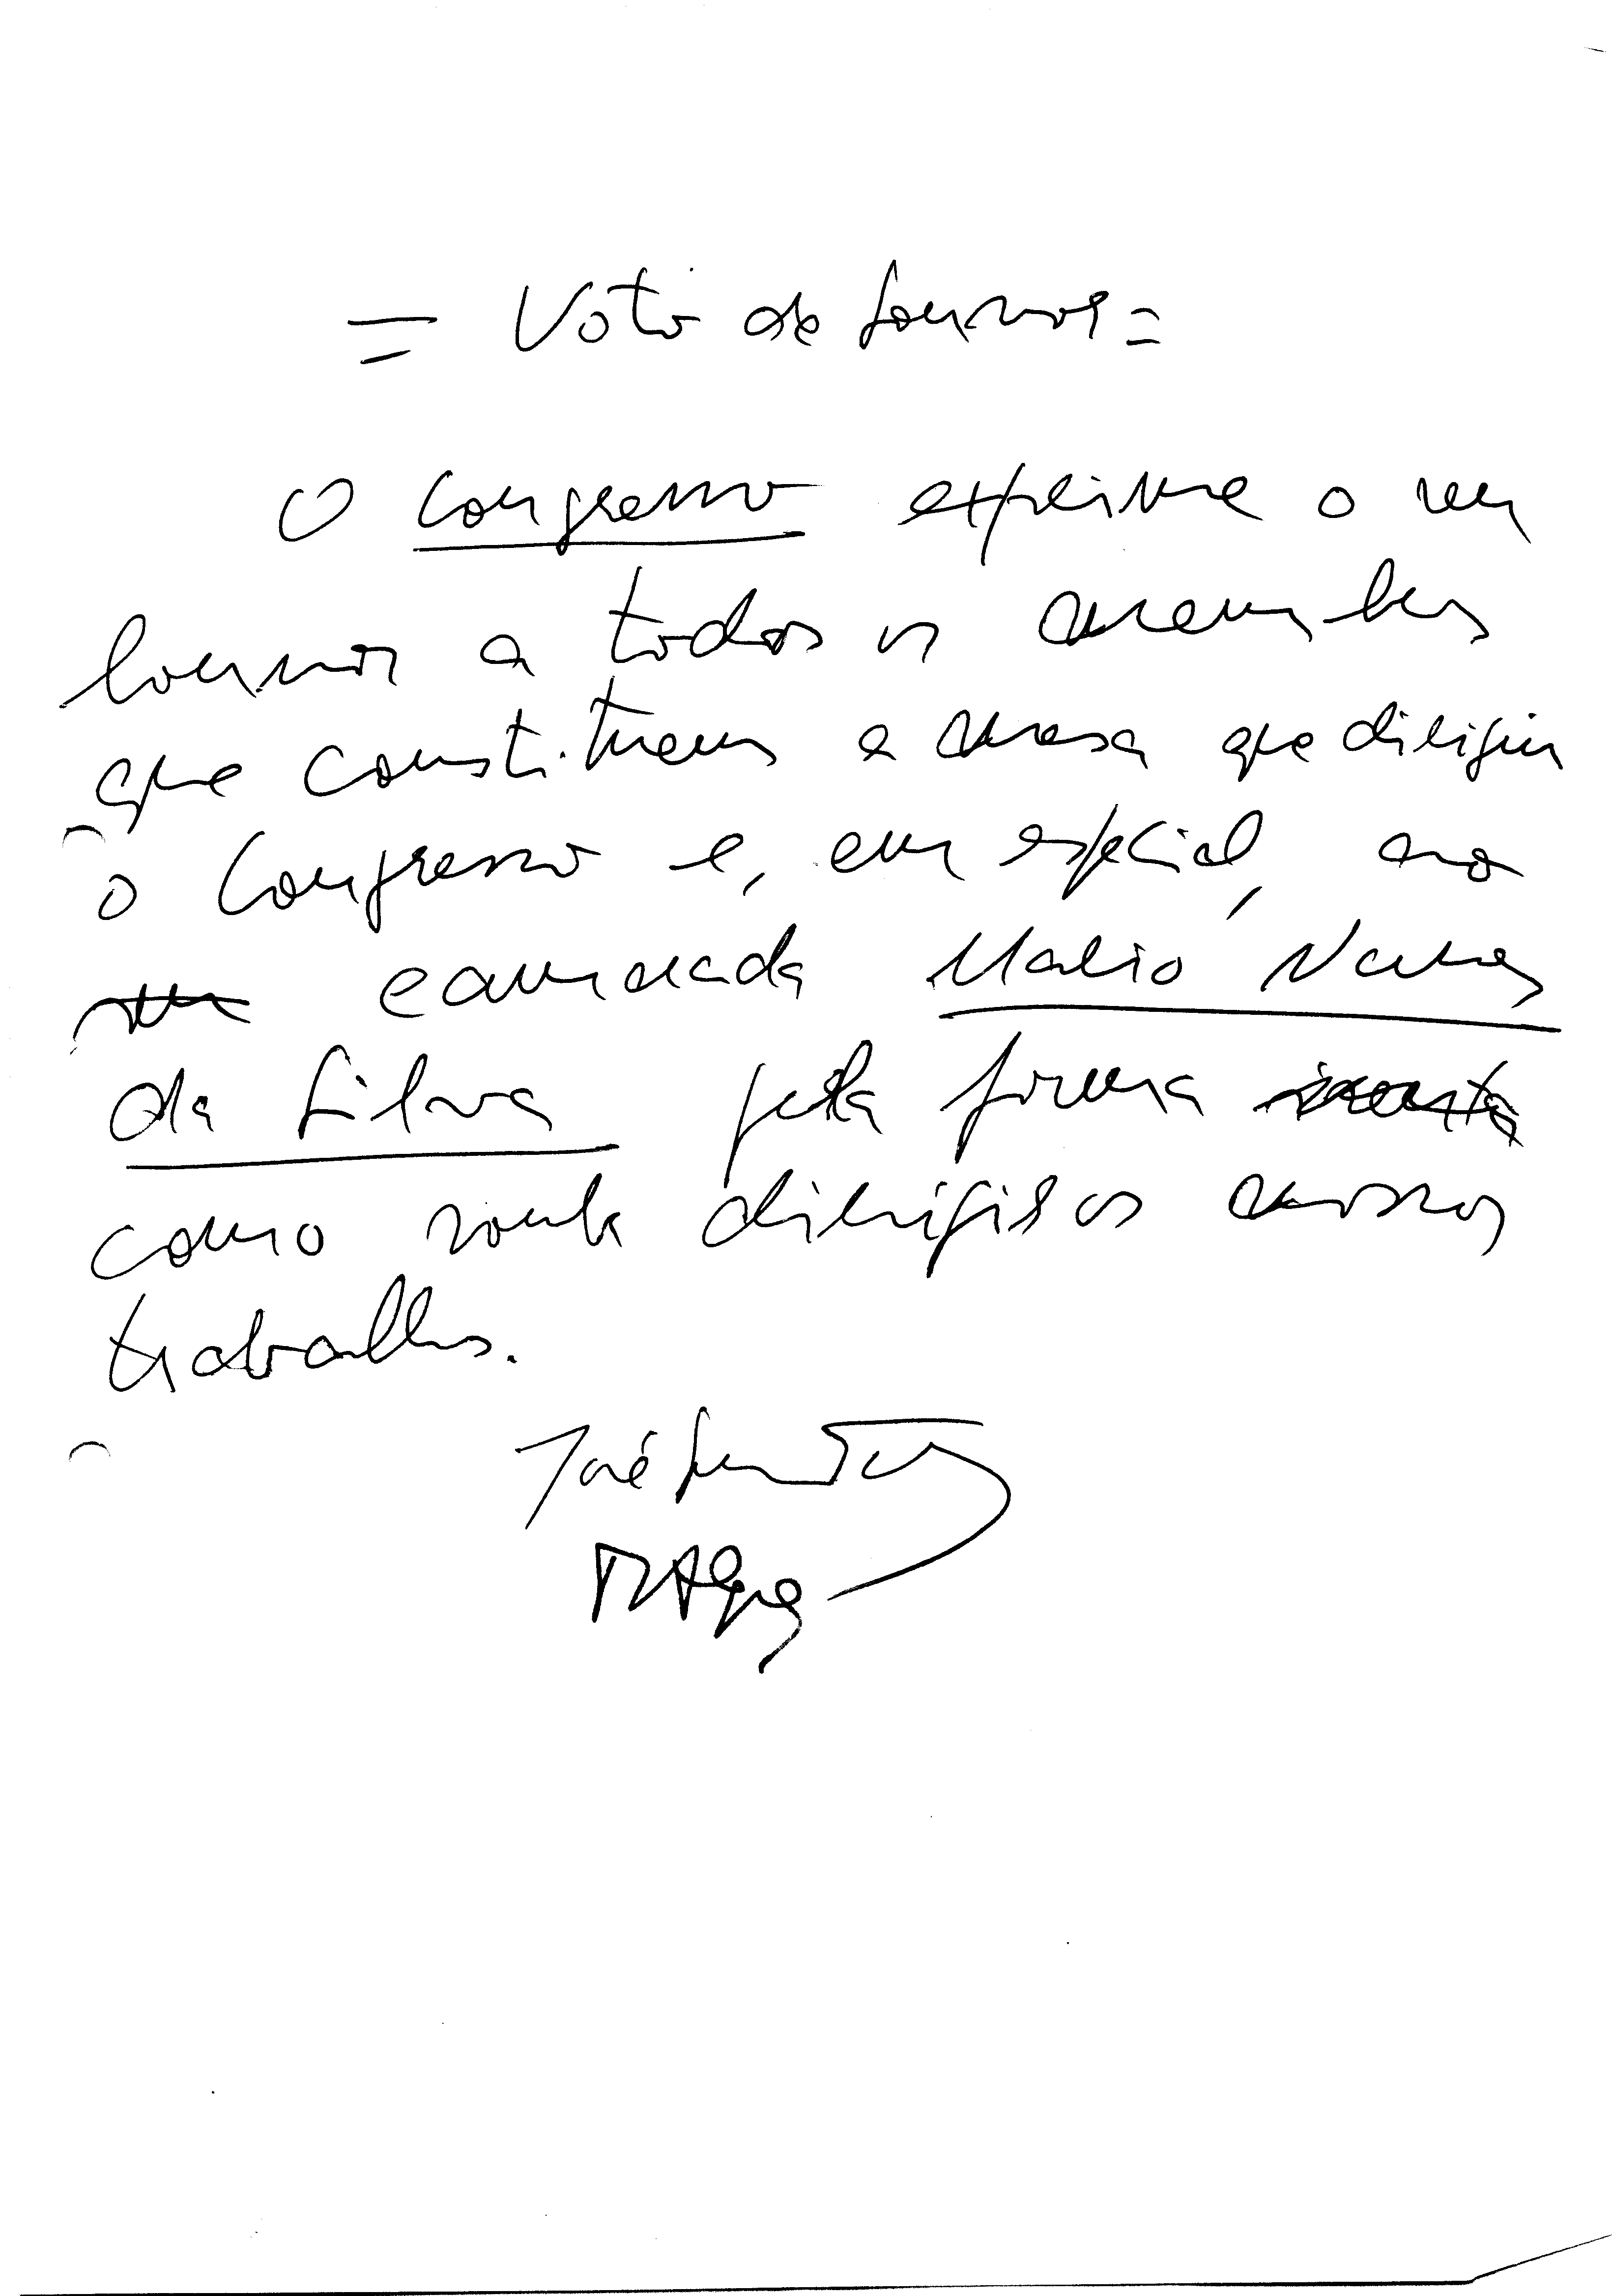 = Voto de Louvor =
O Congresso exprime o seu
louvor a todos os membros
que constituem a mesa que dirigiu
o Congresso e, em especial, ao
camarada Mário Nunes
da Silva pela forma
como soube dirigir os nossos
trabalhos.
José